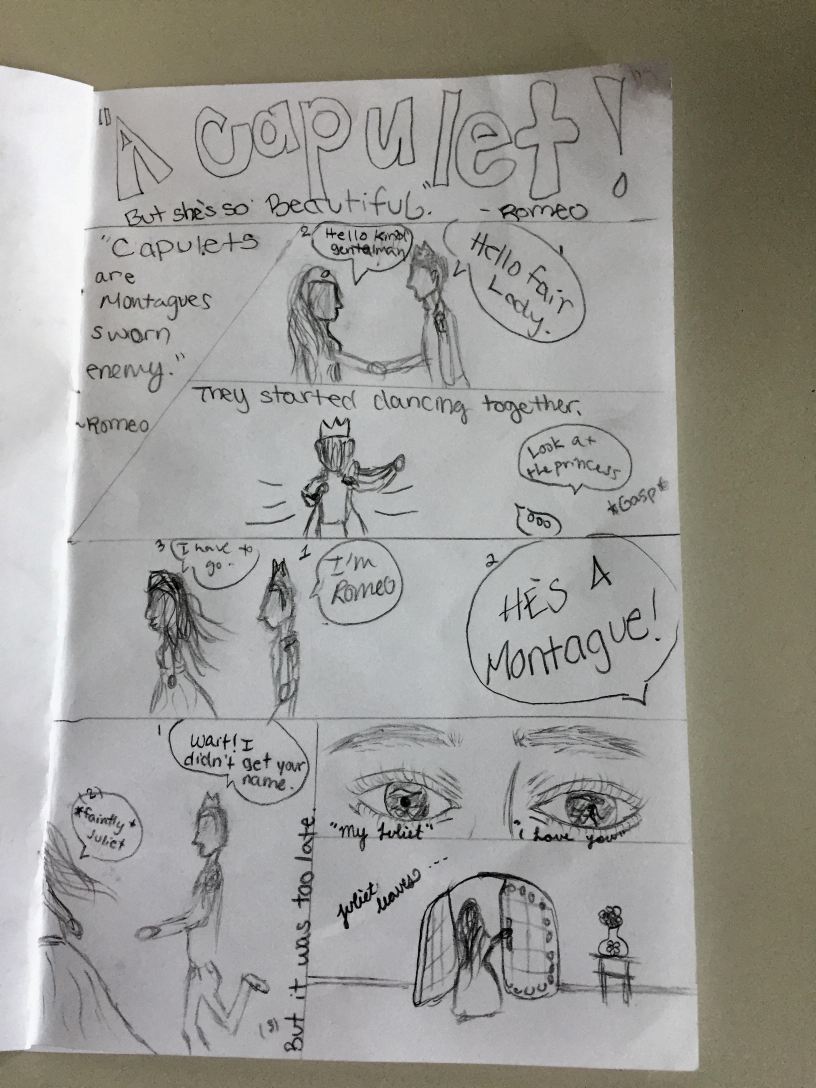 "A Capulet!"
But she's so Beautiful." - Romeo
"Capulets
are
Montagues
sworn
enemy."
~Romeo
1
Hello fair
Lady.
2
Hello kind
gentalman
They started dancing together.
Look at
the princess
*Gasp*
ooo
1
I'm
Romeo
2
HE'S A
Montague!
3
I have to
go.
1
Wait! I
didn't get your
name.
(2)
*faintly*
Juliet
(3)
But it was too late.
"My Juliet"
"i love you"
juliet
leaves...